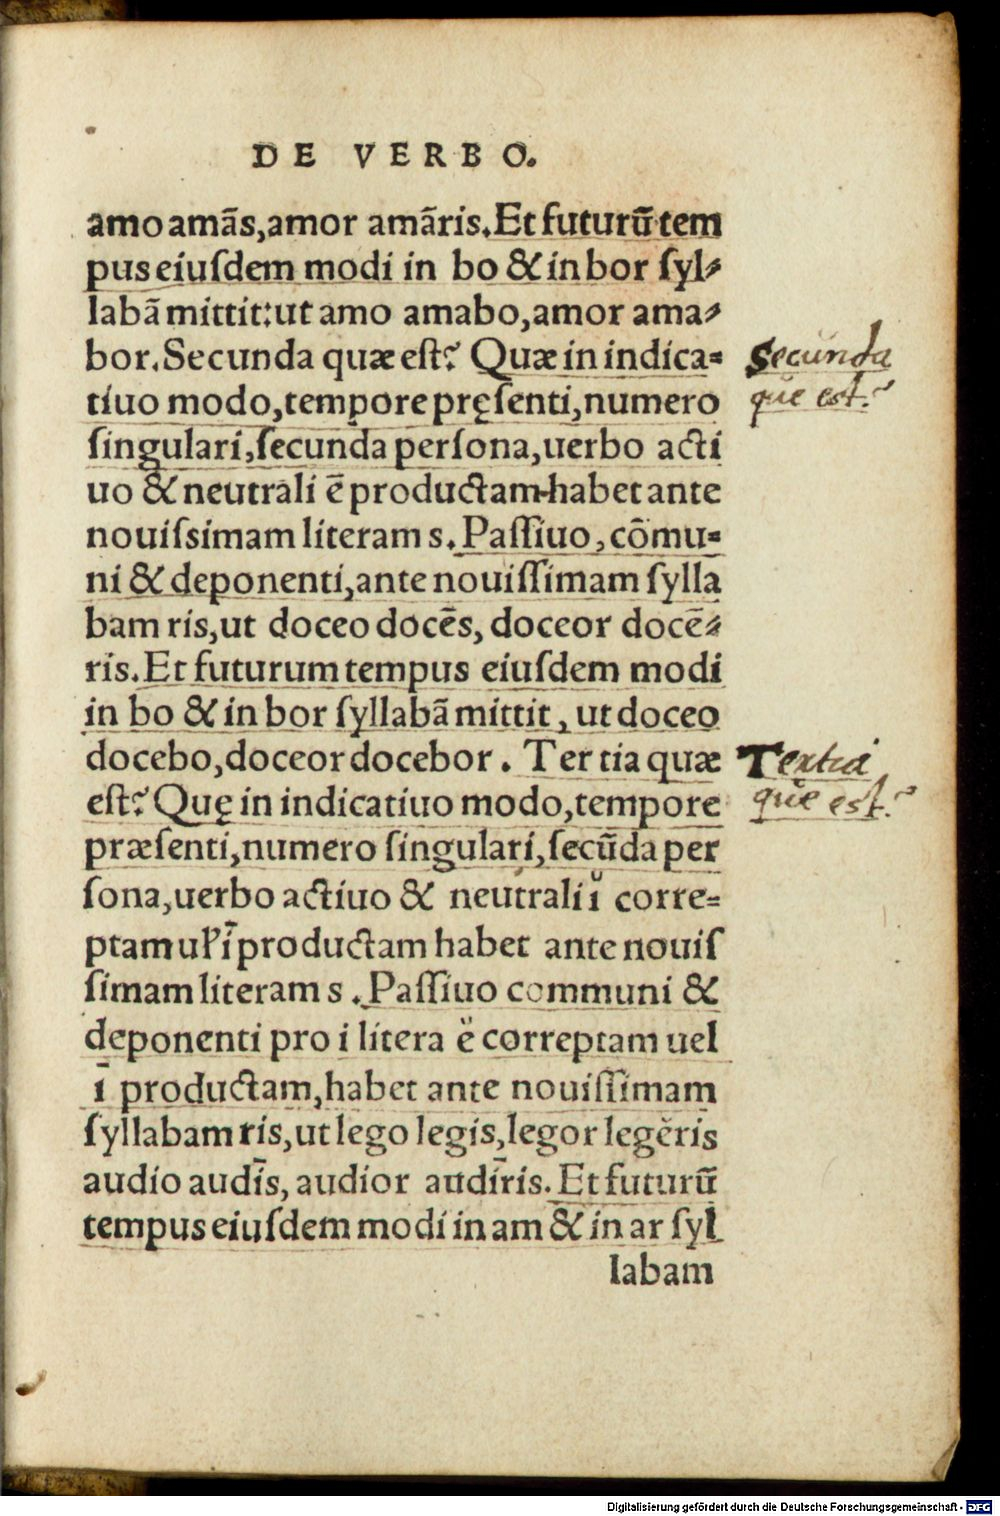 DE VERBO.
amo amãs, amor amãris. Et futurũ tem
pus eiuſdem modi in bo & in bor ſyl⸗
labã mittit: ut amo amabo, amor ama⸗
bor. Secunda quæ eſt? Quæ in indica⸗
tiuo modo, tempore pręſenti, numero
ſingulari, ſecunda perſona, uerbo acti
uo & neutrali ē productam habet ante
nouiſsimam literam s. Paſſiuo, cõmu⸗
ni & deponenti, ante nouiſſimam ſylla
bam ris, ut doceo docēs, doceor docē⸗
ris. Et futurum tempus eiuſdem modi
in bo & in bor ſyllabã mittit, ut doceo
docebo, doceor docebor. Tertia quæ
eſt? Quę in indicatiuo modo, tempore
præſenti, numero ſingulari, ſecũda per
ſona, uerbo actiuo & neutrali ĭ corre⸗
ptam ul' ī productam habet ante nouiſ
ſimam literam s. Paſſiuo communi &
deponenti pro i litera ĕ correptam uel
ī productam, habet ante nouiſſimam
ſyllabam ris, ut lego legis, legor legĕris
audio audīs, audior audīris. Et futurũ
tempus eiuſdem modi in am & in ar ſyl
labam
Secunda
que est?
Tertia
que est?
Digitalisierung gefördert durch die Deutsche Forschungsgemeinschaft - DFG